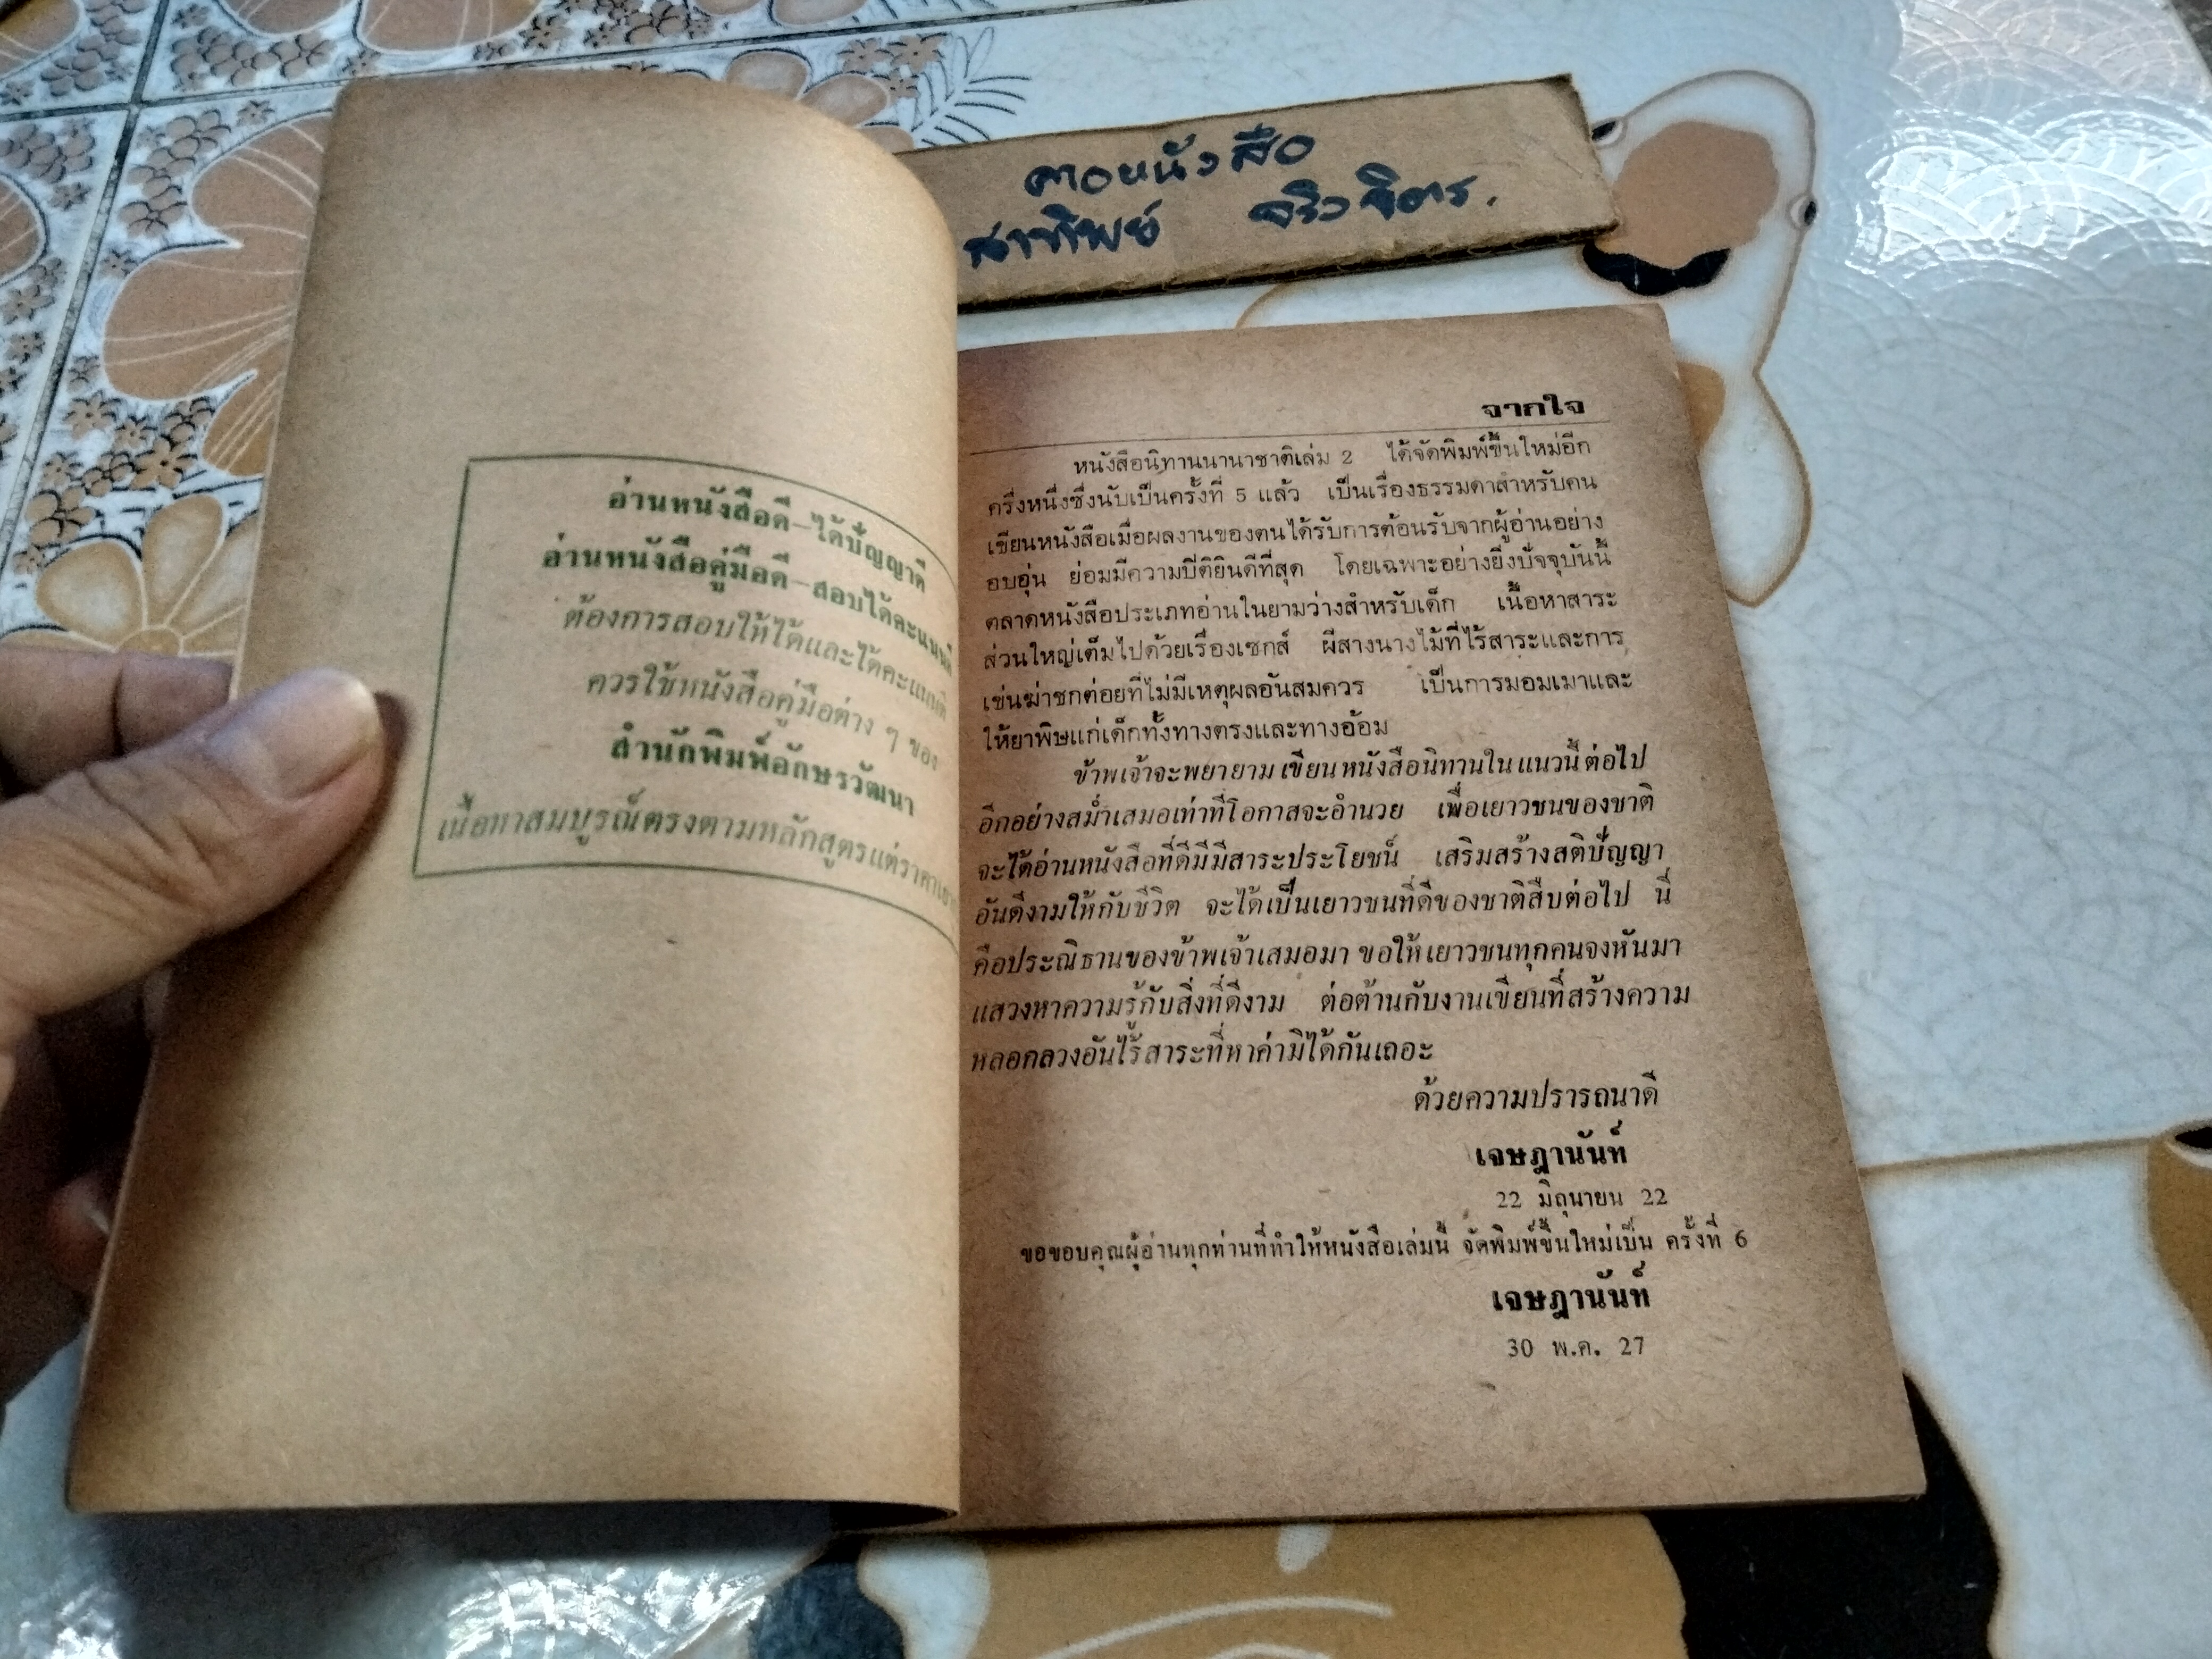 คอหนังสือ
สาทิพย์ จริงจิตร.
อ่านหนังสือดี—ได้ปัญญาดี
อ่านหนังสือคู่มือดี—สอบได้คะแนนดี
ต้องการสอบให้ได้และได้คะแนนดี
ควรใช้หนังสือคู่มือต่าง ๆ ของ
สำนักพิมพ์อักษรวัฒนา
เนื้อหาสมบูรณ์ตรงตามหลักสูตรแต่ราคา
จากใจ
หนังสือนิทานนานาชาติเล่ม 2 ได้จัดพิมพ์ขึ้นใหม่อีก
ครึ่งหนึ่งซึ่งนับเป็นครั้งที่ 5 แล้ว เป็นเรื่องธรรมดาสำหรับคน
เขียนหนังสือเมื่อผลงานของตนได้รับการต้อนรับจากผู้อ่านอย่าง
อบอุ่น ย่อมมีความปีติยินดีที่สุด โดยเฉพาะอย่างยิ่งปัจจุบันนี้
ตลาดหนังสือประเภทอ่านในยามว่างสำหรับเด็ก เนื้อหาสาระ
ส่วนใหญ่เต็มไปด้วยเรื่องเซกส์ ผีสางนางไม้ที่ไร้สาระและการ
เข่นฆ่าชกต่อยที่ไม่มีเหตุผลอันสมควร เป็นการมอมเมาและ
ให้ยาพิษแก่เด็กทั้งทางตรงและทางอ้อม
ข้าพเจ้าจะพยายามเขียนหนังสือนิทานในแนวนี้ต่อไป
อีกอย่างสม่ำเสมอเท่าที่โอกาสจะอำนวย เพื่อเยาวชนของชาติ
จะได้อ่านหนังสือที่ดีมีมีสาระประโยชน์ เสริมสร้างสติปัญญา
อันดีงามให้กับชีวิต จะได้เป็นเยาวชนที่ดีของชาติสืบต่อไป นี่
คือประณิธานของข้าพเจ้าเสมอมา ขอให้เยาวชนทุกคนจงหันมา
แสวงหาความรู้กับสิ่งที่ดีงาม ต่อต้านกับงานเขียนที่สร้างความ
หลอกลวงอันไร้สาระที่หาค่ามิได้กันเถอะ
ด้วยความปรารถนาดี
เจษฎานันท์
22 มิถุนายน 22
ขอขอบคุณผู้อ่านทุกท่านที่ทำให้หนังสือเล่มนี้ จัดพิมพ์ขึ้นใหม่เป็น ครั้งที่ 6
เจษฎานันท์
30 พ.ค. 27